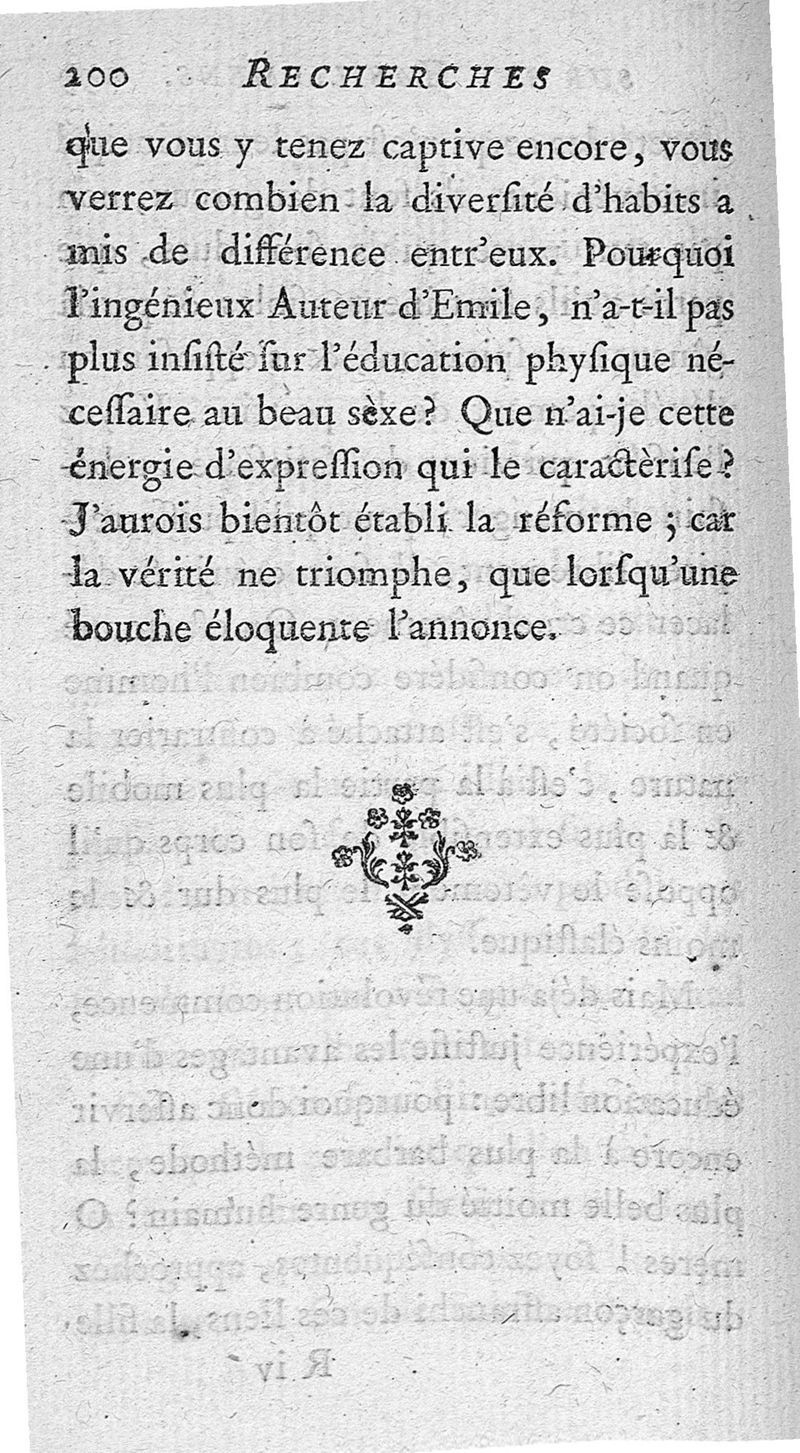 200 RECHERCHES
que vous y tenez captive encore, vous
verrez combien la diverſité d'habits a
mis de différence entr'eux. Pourquoi
l'ingénieux Auteur d'Emile, n'a-t-il pas
plus inſiſté ſur l'éducation phyſique né-
ceſſaire au beau sèxe? Que n'ai-je cette
énergie d'expreſſion qui le caractèriſe?
J'aurois bientôt établi la réforme; car
la vérité ne triomphe, que lorſqu'une
bouche éloquente l'annonce.